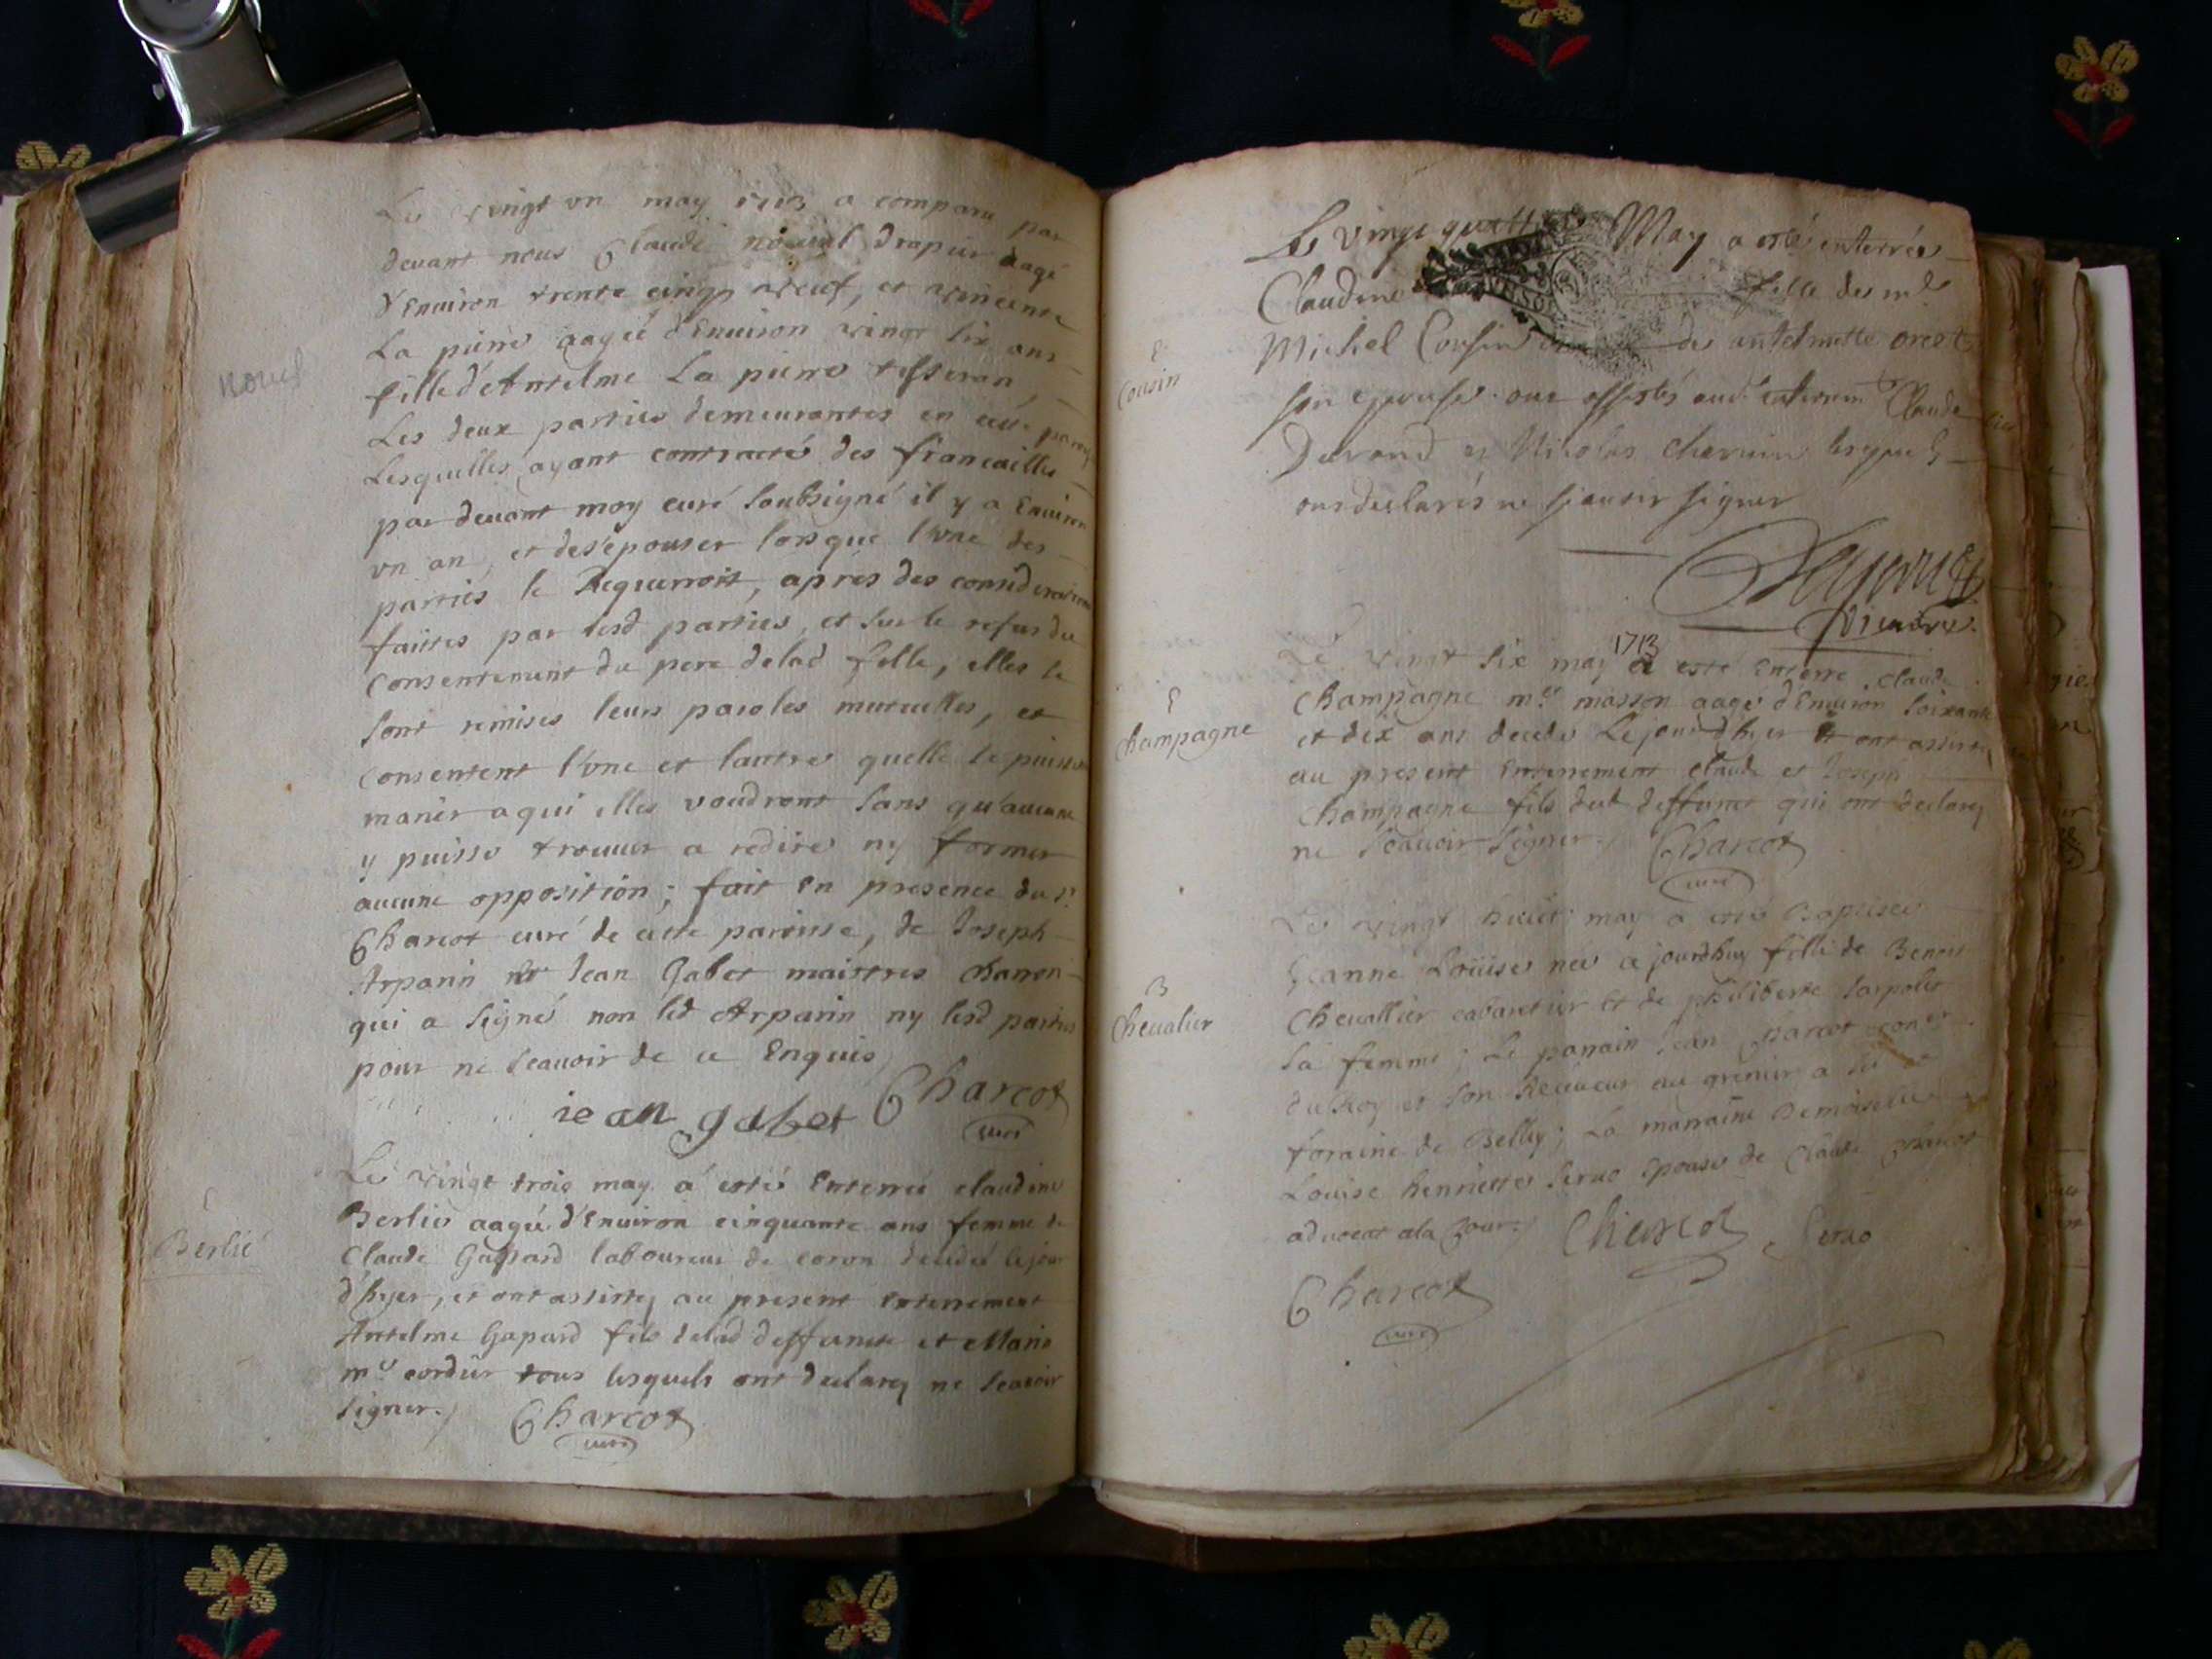 Le vingt un may 1713 a comparu par
devant nous Claude nouvel drapier aagé
d'Environ trente cinq, veuf, et vincente
La pierre aagée d'Environ vingt six ans
fille d'Antelme La pierre tisseran,
Les deux parties demeurantes en cette
Lesquelles ayant contracté des fiancailles
par devant moy curé soubsigné il y a Environ
un an, et de s'epouser lorsque l'une des
parties le Requerroit, aprés des considerations
faittes par lesd parties, et sur le refus du
Consentement du pere delad fille, elles se
sont remises leurs paroles mutuelles, et
consentent l'une et lautre quelle se puisse
marier a qui elles voudront sans qu'aucune
y puisse trouuer a redire ny former
aucune opposition; fait En presence du Sr
Charcot curé de cette paroisse, de Joseph
Arparin et Jean Gabet maittres
qui a signé non led Arparin ny lesd parties
pour ne scauoir de ce Enquis
iean gabet Charcot
curé
nouel
Le vingt trois may a esté Enterrée claudine
Berlie aagée d'Environ cinquante ans femme de
Claude Gaspard laboureur de coron decedée le jour
d'hyer, et ont assistez au present Enterrement
Antelme Gapard fils delad deffuncte et Marie
cordier tous lesquels ont declarez ne scavoir
signer.
Charcot
curé
Berlié
Le vingt quattre May a esté enterrée
Claudine fille de
Michel Cousin de antelmette
son epouse ont assistés aud enterrem Claude
Durand et Nicolas chervin lesquels
ont declarés ne scauoir signer
vicaire
E
Cousin
Le vingt six may 1713 a esté Enterré claude
Champagne masson aagé d'Environ soixante
et dix ans decedé Le jour d'hyer et ont assistés
au present Enterrement claude et Joseph
Champagne fils dud deffunct qui ont declarez
ne scauoir signer. Charcot
curé
E
Champagne
Le vingt huict may a esté Baptisée
Jeanne Loüise née a jourdhuy fille de Benoit
Chevallier cabaretier et de philiberte
sa femme; Le parrain Jean Charcot
du Roy et son Receveur au grenier a sel
foraine de Belley; La marraine Demoiselle
Louise henriette Serao Epouse de Claude Charcot
advocat ala Cour. Charcot Serao
Charcot
curé
B
Chevalier